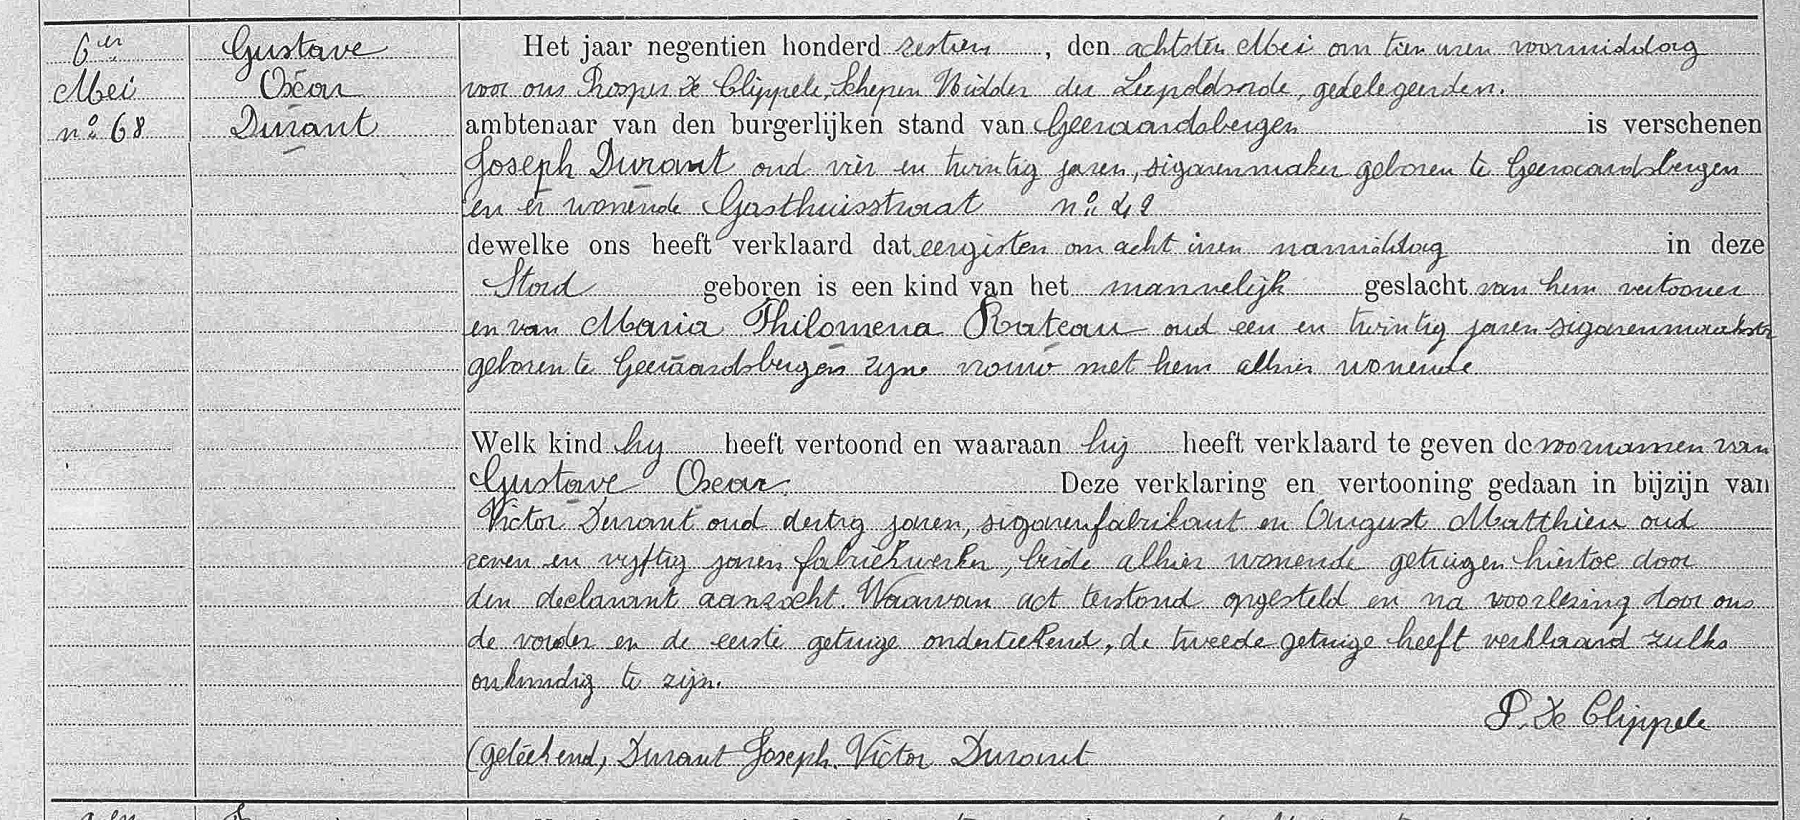 6en
Mei
no 68
Gustave
Oscar
Durant
Het jaar negentien honderd zestien, den achtsten Mei om tien uren voormiddag
voor ons Prosper De Clippele, Schepen Ridder der Leopoldsorde, gedelegeerden.
ambtenaar van den burgerlijken stand van Geeraardsbergen is verschenen
Joseph Durant oud vier en twintig jaren, sigarenmaker geboren te Geeraardsbergen
en er wonende Gasthuisstraat no 42
dewelke ons heeft verklaard dat eergisten om acht uren namiddag in deze
Stad geboren is een kind van het mannelijk geslacht van hem vertooner
en van Maria Philomena Rateau oud een en twintig jaren sigarenmaakster
geboren te Geeraardsbergen zyne vrouw met hem alhier wonende
Welk kind hy heeft vertoond en waaraan hij heeft verklaard te geven de voornamen van
Gustave Oscar. Deze verklaring en vertooning gedaan in bijzijn van
Victor Durant oud dertig jaren, sigarenfabrikant en August Matthieu oud
zeven en vyftig jaren fabriekwerker, beide alhier wonende getuigen hiertoe door
den declarant aanzocht. Waarvan act terstond opgesteld en na voorlezing door ons
de vader en de eerste getuige onderteekend, de tweede getuige heeft verklaard zulks
onkundig te zijn.
P. De Clippele
(geteekend) Durant Joseph. Victor Durant